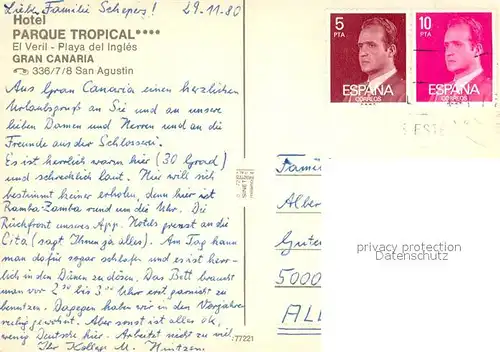 Liebe Familie Schepers! 29.11.80
Hotel
PARQUE TROPICAL****
El Veril - Playa del Inglés
GRAN CANARIA
336/7/8 San Agustin
Aus Gran Canaria einen herzlichen
Urlaubsgruß an Sie und an unsere
lieben Damen und Herren und an die
Freunde aus der Schlosserei.
Es ist herrlich warm hier (30 Grad)
und schrecklich laut. Hier will sich
bestimmt keiner erholen, denn hier ist
Ramba-Zamba rund um die Uhr. Die
Rückfront unseres App. Hotels grenzt an die
Cita (sagt Ihnen ja alles). Am Tag kann
man dafür sogar schlafen und es ist herr-
lich in den Dünen zu dösen. Das Bett braucht
man vor 2 30 bis 3 00 Uhr erst garnicht zu
benutzen. Dagegen haben wir in den Vorjahren
ruhig gewohnt. Aber sonst ist alles ok,
wenig Deutsche hier. Arbeitet nicht zu viel
Ihr Kollege M. Hintzen
5
PTA
ESPAÑA
CORREOS
10
PTA
ESPAÑA
CORREOS
Albe
Gute
5000
ALL
privacy protection
Datenschutz
77221